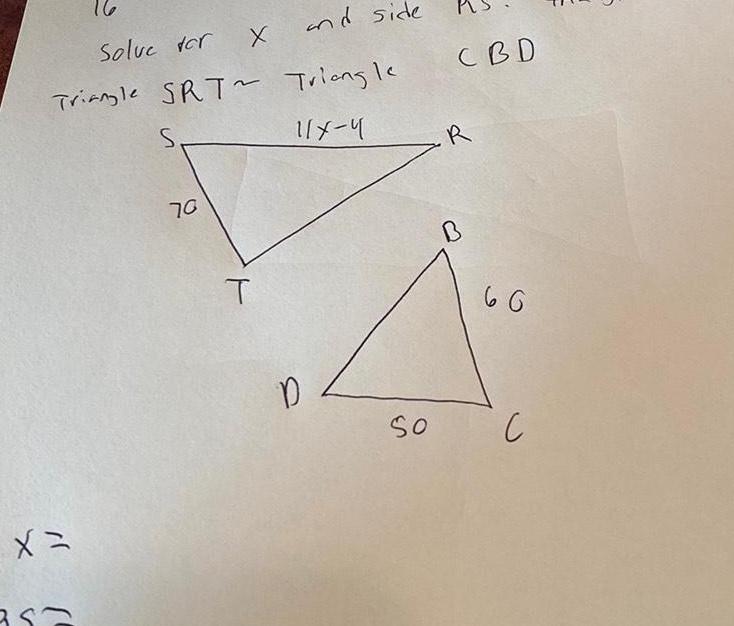 16
Solve for X and side RS.
Triangle SRT ~ Triangle CBD
S 11x-4 R
70
T
B
60
D
50 C
x =
RS =